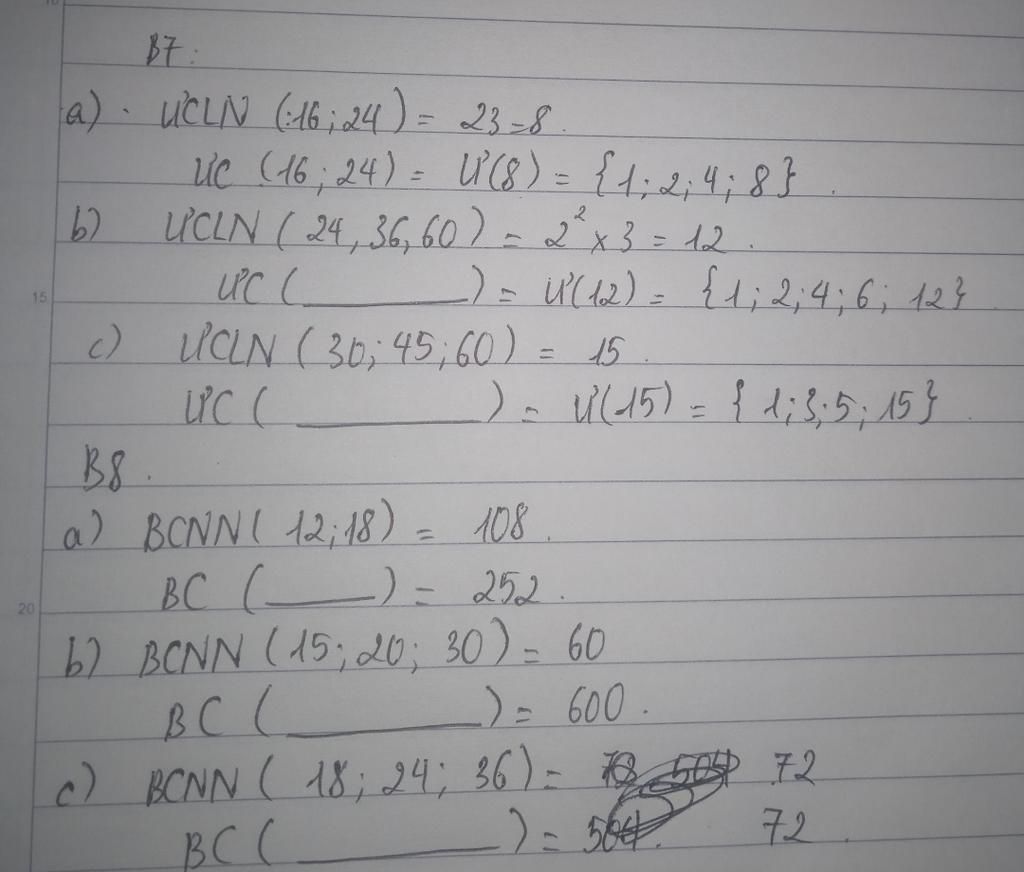 B7:
a) ƯCLN (16; 24) = 23 = 8.
ƯC (16; 24) = Ư(8) = {1; 2; 4; 8}.
b) ƯCLN (24, 36, 60) = 2² × 3 = 12.
15
ƯC (______) = Ư(12) = {1; 2; 4; 6; 12}
c) ƯCLN (30; 45; 60) = 15.
ƯC (______) = Ư(15) = {1; 3; 5; 15}
B8.
a) BCNN (12; 18) = 108.
20
BC (____) = 252.
b) BCNN (15; 20; 30) = 60
BC (______) = 600.
c) BCNN (18; 24; 36) = 72
BC (______) = 72.